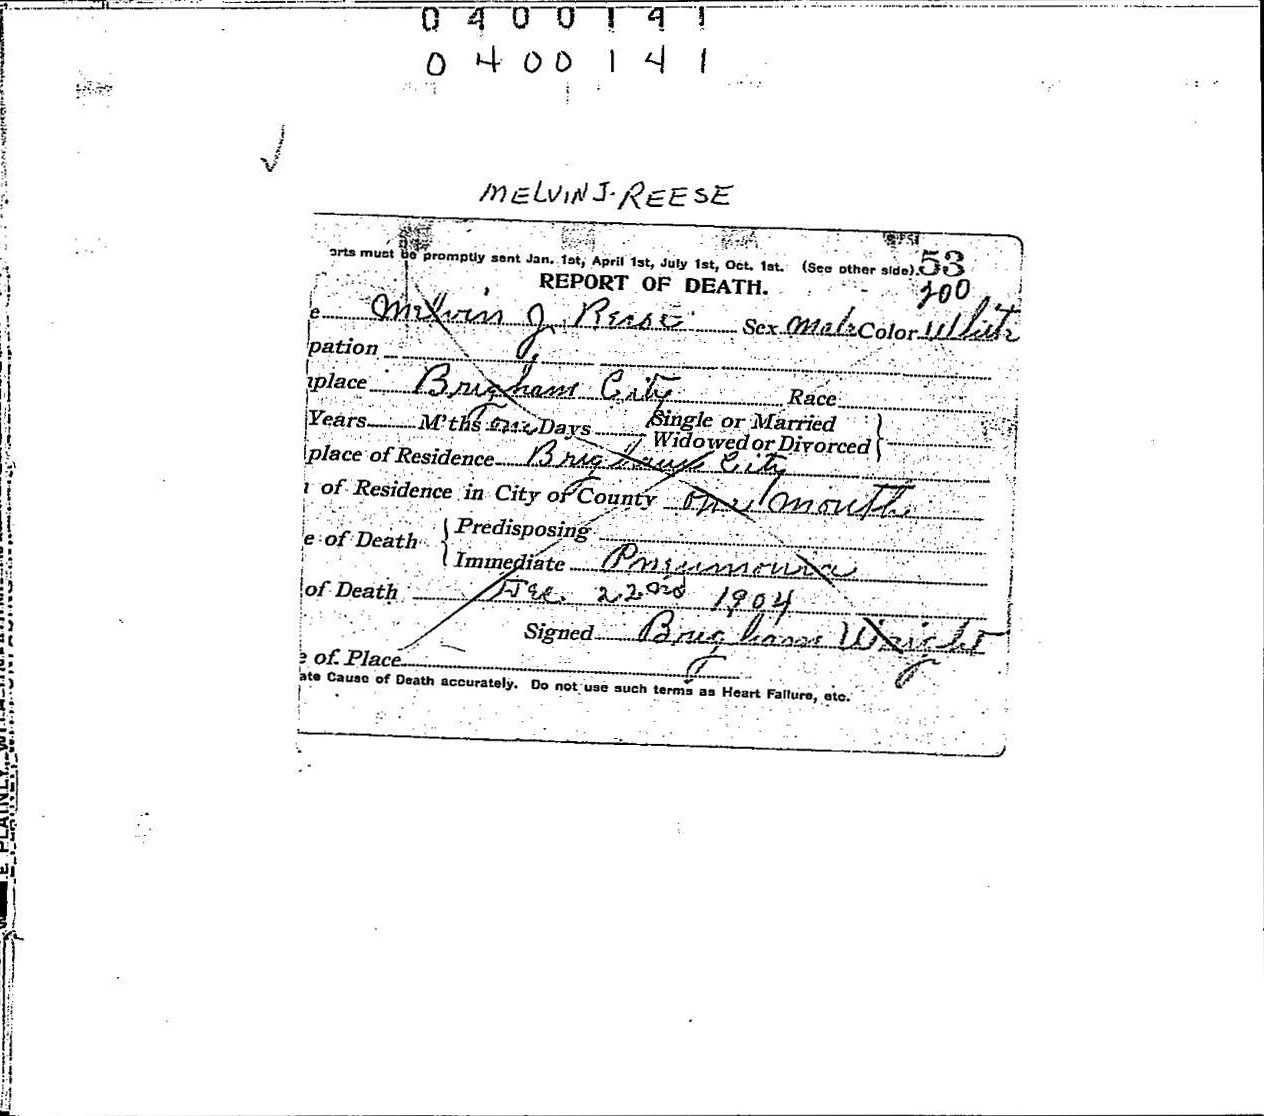 0 4 0 0 1 4 1
0 4 0 0 1 4 1
MELVIN J. REESE
orts must be promptly sent Jan. 1st, April 1st, July 1st, Oct. 1st. (See other side). 53
REPORT OF DEATH. 200
e Melvin J. Reese Sex Male Color White
pation
nplace Brigham City Race
Years M'ths One Days Single or Married
Widowed or Divorced
place of Residence Brigham City
of Residence in City or County one month
e of Death Predisposing
Immediate Pneumonia
of Death Dec. 22nd 1904
Signed Brigham Wright
e of Place
ate Cause of Death accurately. Do not use such terms as Heart Failure, etc.
E PLAINLY, WITH